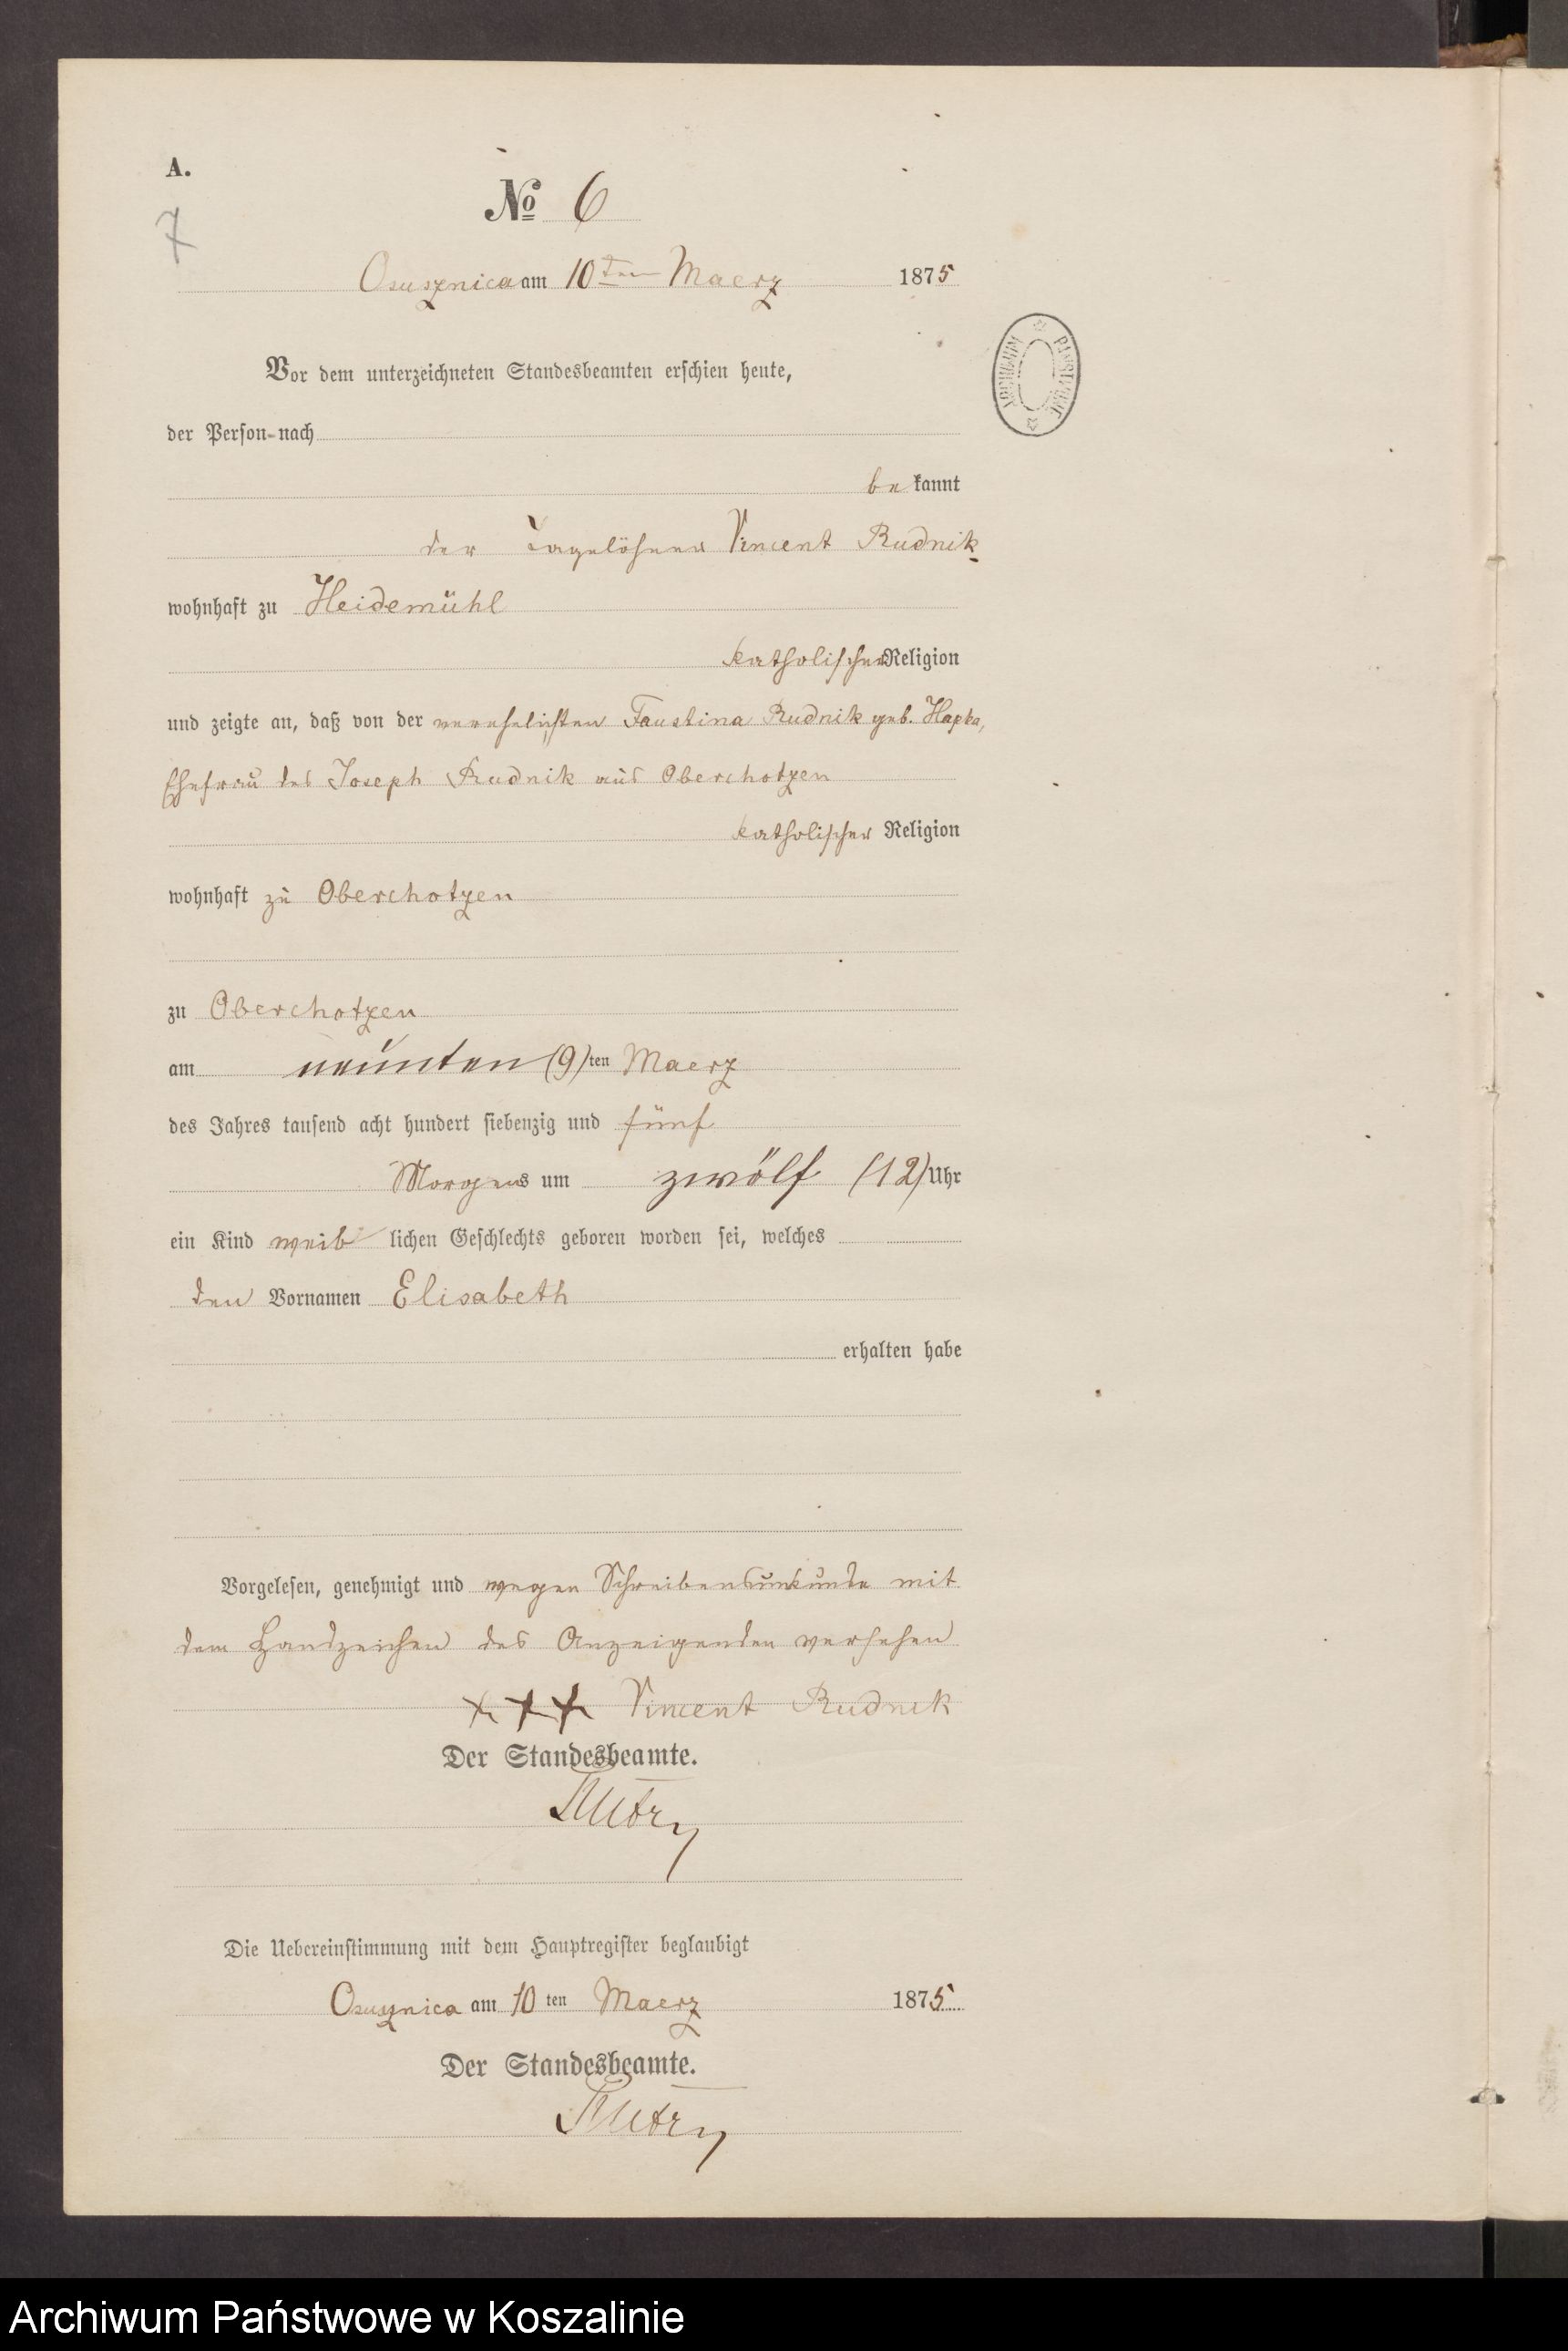 A.
7
№ 6
Osusznica am 10ten Maerz 1875
Vor dem unterzeichneten Standesbeamten erschien heute,
der Person nach
bekannt
der Tagelöhner Vincent Rudnik
wohnhaft zu Heidemühl
katholischer Religion
und zeigte an, daß von der verehelichten Faustina Rudnik geb. Hapka,
Ehefrau des Joseph Rudnik aus Oberchotzen
katholischer Religion
wohnhaft zu Oberchotzen
zu Oberchotzen
am neunten (9)ten Maerz
des Jahres tausend acht hundert siebenzig und fünf
Morgens um zwölf (12) Uhr
ein Kind weiblichen Geschlechts geboren worden sei, welches
den Vornamen Elisabeth
erhalten habe
Vorgelesen, genehmigt und wegen Schreibensunkunde mit
dem Handzeichen des Anzeigenden versehen
+++ Vincent Rudnik
Der Standesbeamte.
Die Uebereinstimmung mit dem Hauptregister beglaubigt
Osusznica am 10ten Maerz 1875
Der Standesbeamte.
ARCHIWUM PAŃSTWOWE
Archiwum Państwowe w Koszalinie